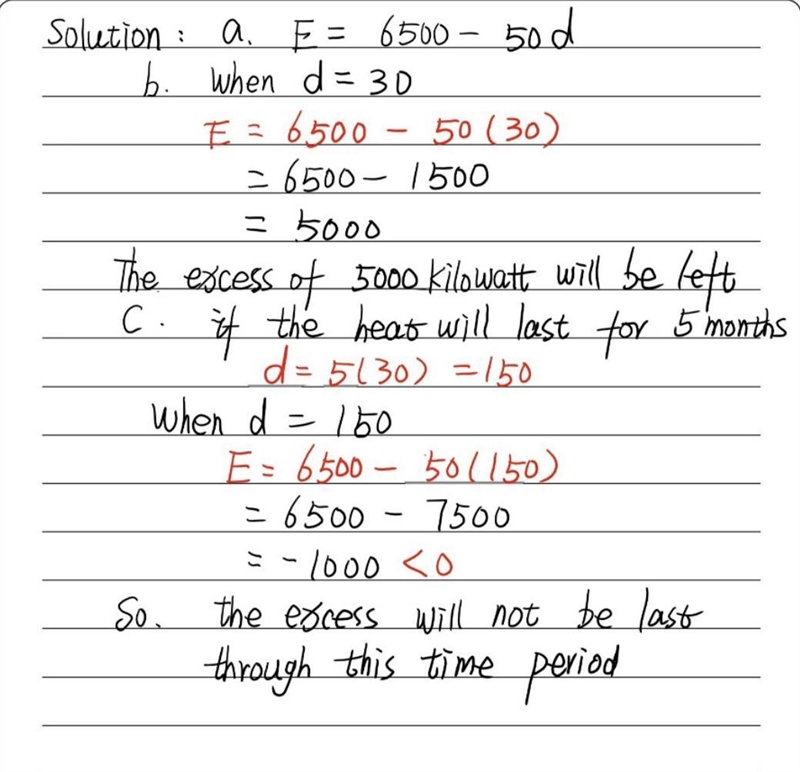 Solution: a. E = 6500 - 50d
b. when d = 30
E = 6500 - 50(30)
= 6500 - 1500
= 5000
The excess of 5000 kilowatt will be left
C. if the heat will last for 5 months
d = 5(30) = 150
When d = 150
E = 6500 - 50(150)
= 6500 - 7500
= -1000 < 0
So. the excess will not be last
through this time period